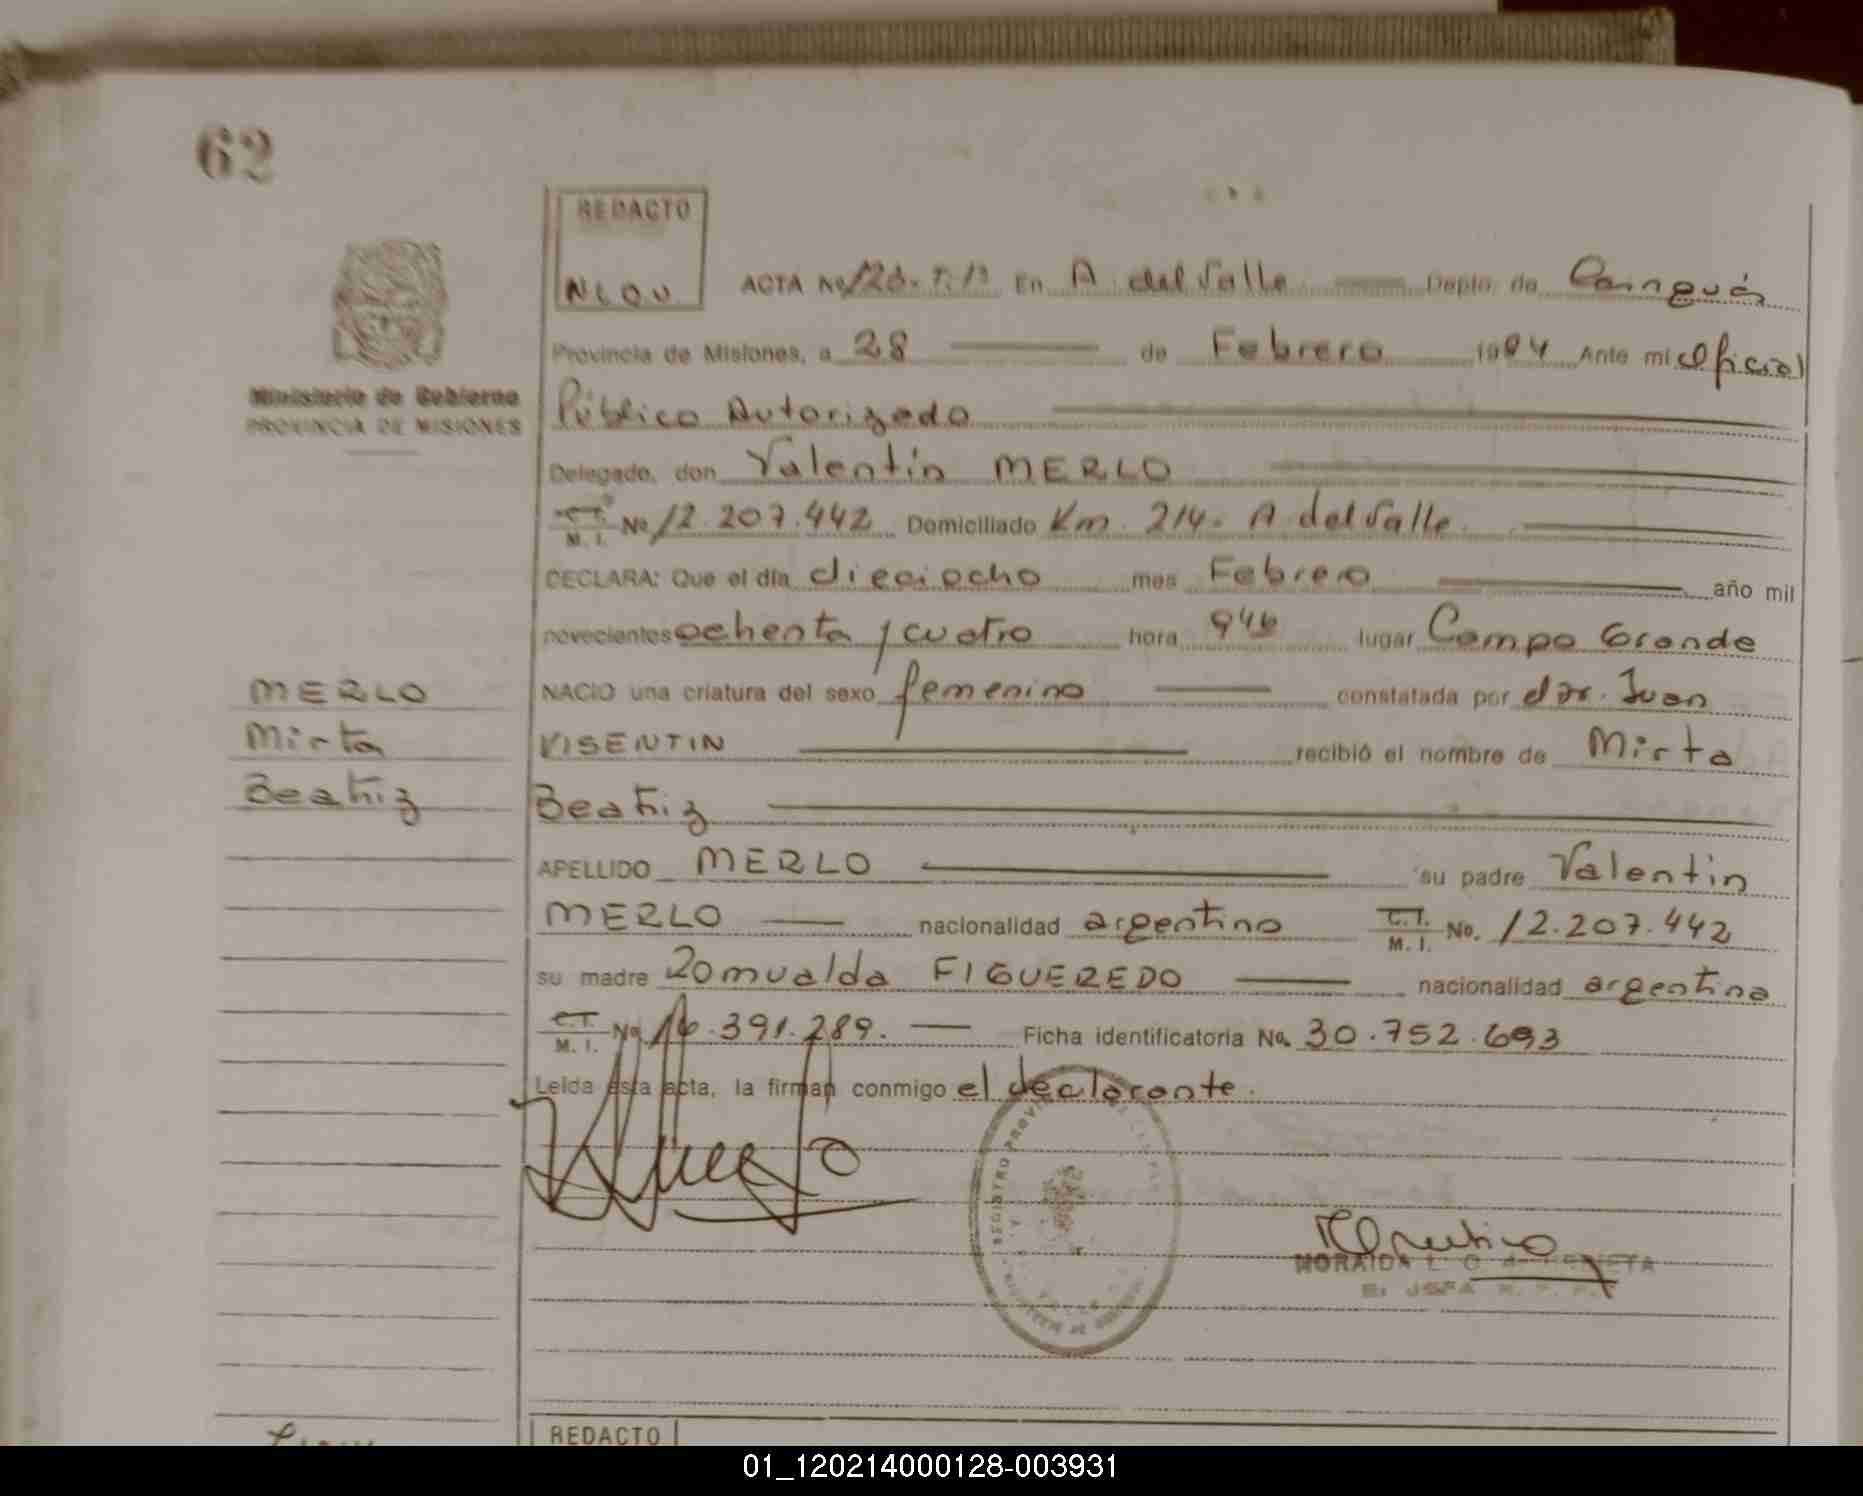 62
REDACTO
NLOU
ACTA No 126. T. 1º En A. del Valle Depto. de Cainguás
Ministerio de Gobierno
PROVINCIA DE MISIONES
Provincia de Misiones, a 28 de Febrero 1984 Ante mi Oficial
Público Autorizado
Delegado, don Valentin MERLO
C.I. M. I. No 12.207.442 Domiciliado Km. 214. A del Valle
DECLARA: Que el día dieciocho mes Febrero año mil
novecientos ochenta y cuatro hora lugar Campo Grande
MERLO
Mirta
Beatriz
NACIO una criatura del sexo femenino constatada por el dr. Juan
VISENTIN recibió el nombre de Mirta
Beatriz
APELLIDO MERLO su padre Valentin
MERLO nacionalidad argentino C.I. M. I. No. 12.207.442
su madre Romualda FIGUEREDO nacionalidad argentina
C.I. M. I. No 16.391.289. Ficha identificatoria No. 30.752.693
Leida esta acta, la firman conmigo el declarante.
REGISTRO PROVI
MORAIDA L.
REDACTO
01_120214000128-003931